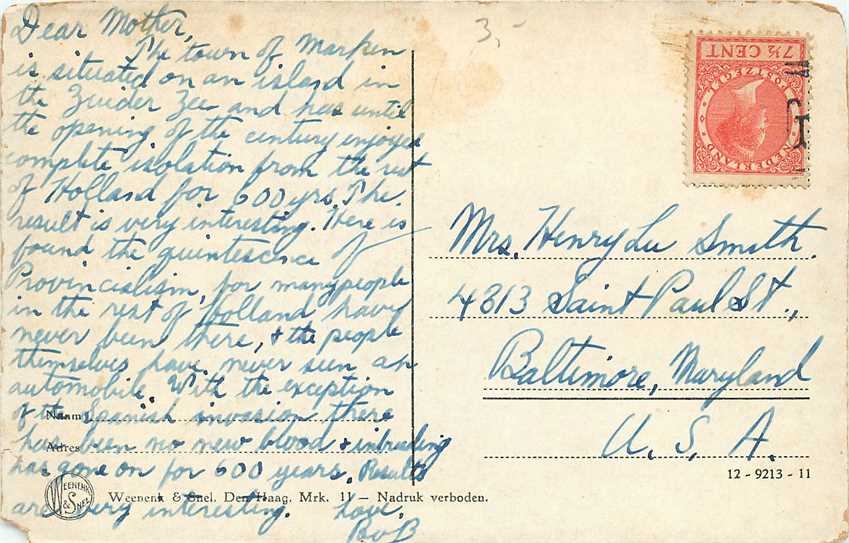 Dear Mother,
The town of Marken
is situated on an island in
the Zuider Zee and has until
the opening of the century enjoyed
complete isolation from the rest
of Holland for 600 yrs. The
result is very interesting. Here is
found the quintescence of
Provincialism, for many people
in the rest of Holland have
never been there, & the people
themselves have never seen an
automobile. With the exception
of the Spanish invasion there
has been no new blood & inbreeding
has gone on for 600 years. Results
are very interesting. Love,
BvB
Naam
Adres
WEENENK & SNEL
Weenenk & Snel. Den Haag. Mrk. 11 — Nadruk verboden.
3,-
7½ CENT
POSTZEGEL
NEDERLAND
Mrs. Henry Lee Smith.
4313 Saint Paul St.,
Baltimore, Maryland
U. S. A.
12 - 9213 - 11